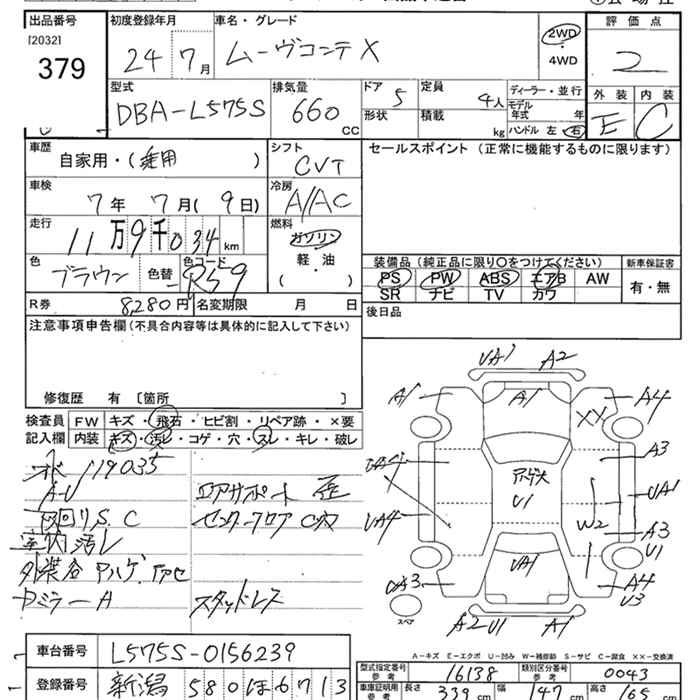 出品番号 初度登録年月 車名・グレード 評価点
[2032]
379
24 7月 ムーヴコンテ X 2WD 2
4WD
型式 排気量 ドア 定員 ディーラー・並行 外装 内装
DBA-L575S 660 CC 5 4人 モデル年式 年
形状 積載 kg ハンドル 左 右 E C
車歴 自家用・( ) シフト CVT セールスポイント (正常に機能するものに限ります)
車検 7年 7月(9日) 冷房 A/AC
走行 11万9千034 km 燃料 ガソリン
軽・油
( )
色 ブラウン 色替 色コード R59
装備品 (純正品に限り○をつけてください) 新車保証書
PS PW ABS エアB AW 有・無
SR ナビ TV カワ
R券 8,280円 名変期限 月 日 後日品
注意事項申告欄(不具合内容等は具体的に記入して下さい)
修復歴 有 [箇所 ]
検査員 FW キズ・飛石・ヒビ割・リペア跡・×要
記入欄 内装 キズ・汚レ・コゲ・穴・スレ・キレ・破レ
119035
A-U エアサポート 歪
回り S.C センターフロア C穴
室内汚レ
外装色アハゲ
Dミラー A スタッドレス
UA1 A2
A1 A1 A4
XX
A3
UA4 UA1
U1 W2
UA4 A3
U1
UA1
UA3 A4
U3
スペア
A2 U1 A1
A-キズ E-エクボ U-凹み W-補修跡 S-サビ C-腐食 XX-交換済
車台番号 L575S-0156239
型式指定番号 参考 16138 類別区分番号 参考 0043
登録番号 新潟 580 ほ 6713
車庫証明用 参考 長さ 339 cm 幅 147 cm 高さ 163 cm